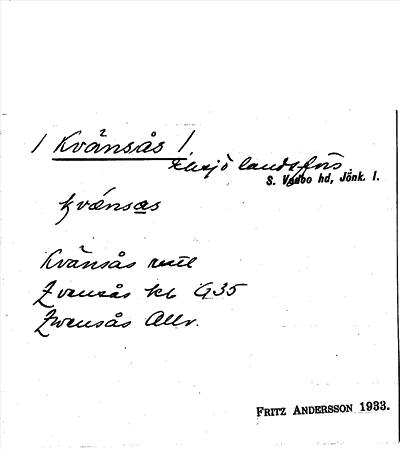 / Kvänsås /.
Eksjö landsförs.
S. Vedbo hd, Jönk. l.
kvǽnsas
Kvänsås
Zvensås kb G35
Zwensås Allv.
FRITZ ANDERSSON 1933.